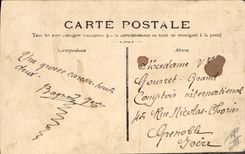 CARTE POSTALE
Tous les pays étrangers n'acceptent pas la correspondance au recto (se renseigner à la poste)
Correspondance
Adresse
Une grosse caresse à toutes
deux.
Madame Vve
Gourret Grand
Comptoir international
45 Rue Nicolas-Chorier
Grenoble
Isère